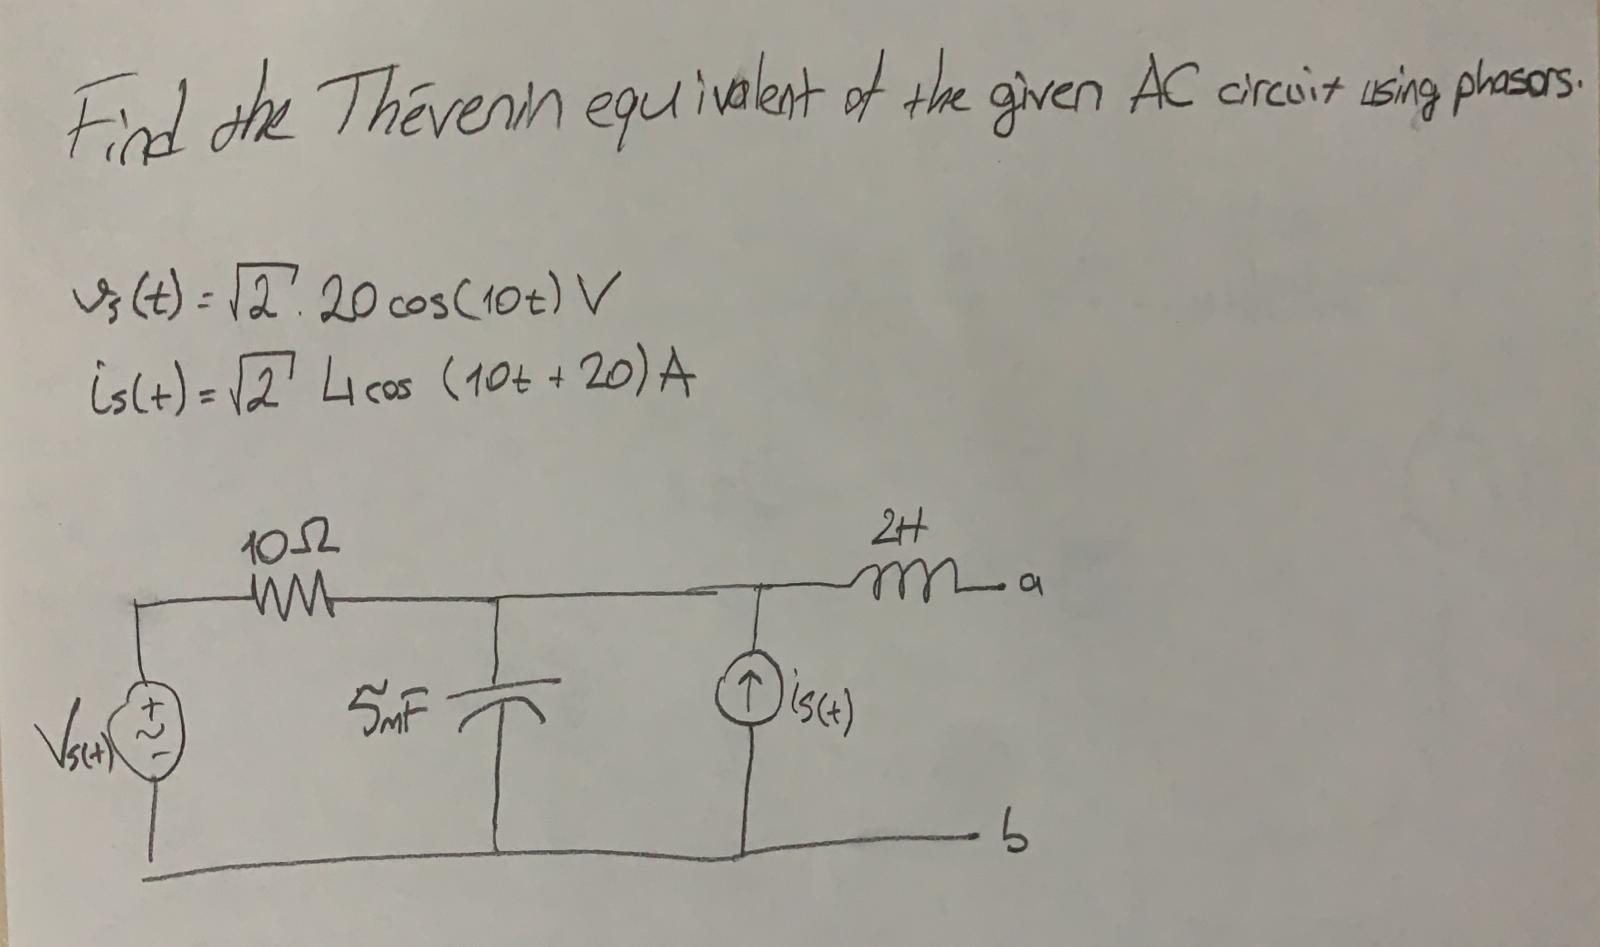 Find the Thévenin equivalent of the given AC circuit using phasors.
vs(t) = √2 . 20 cos(10t) V
is(t) = √2 4 cos (10t + 20) A
10Ω
2H
a
Vs(t)
+
-
5mF
is(t)
b